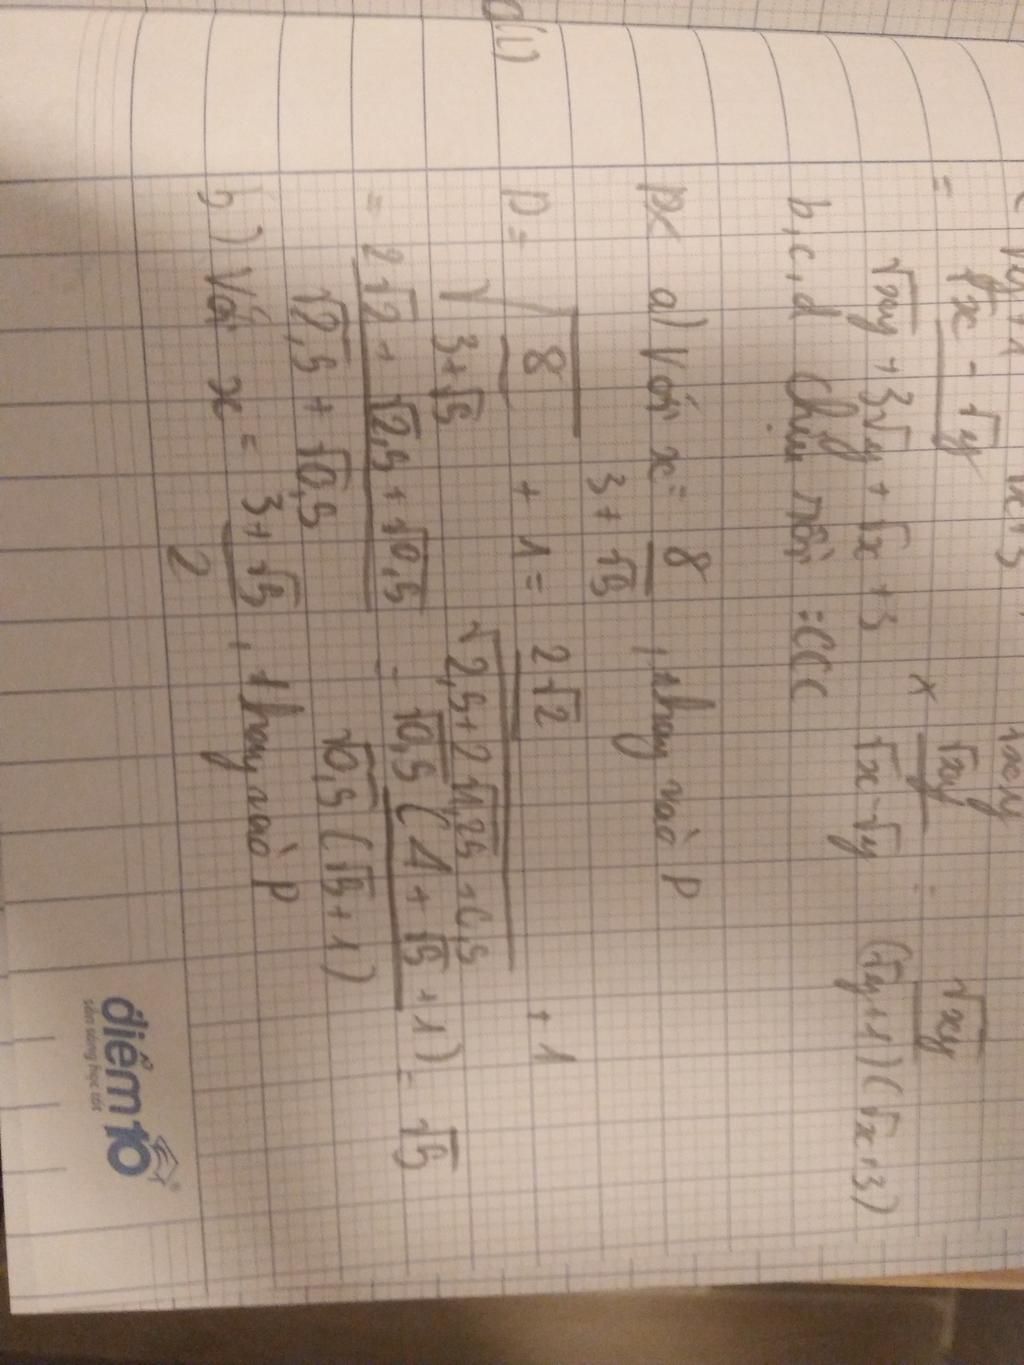 √x - √y
= ————— × √xy / (√x - √y) = √xy / ((√y + 1)(√x + 3))
√xy + 3√y + √x + 3
b, c, d Chịu rồi :CCC
a) Với x = 8 / (3 + √5), thay vào P
P = √(8 / (3 + √5)) + 1 = 2√2 / √(2,5 + 2√1,25 + 0,5) + 1
= (2√2 + √2,5 + √0,5) / (√2,5 + √0,5) = √0,5 ( 4 + √5 + 1) / √0,5 (√5 + 1) = √5
b) Với x = (3 + √5) / 2, thay vào P
điểm 10
sẵn sàng học tốt